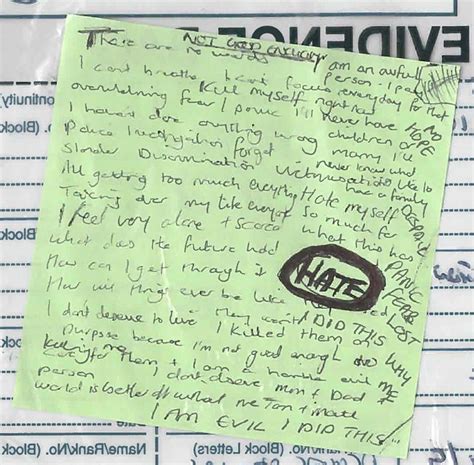 EVIDENCE
NOT GOOD ENOUGH
There are no words
I am an awful person. I pay
I can't breathe I can't focus everyday for that
overwhelming fear I panic Kill myself right now
I'll never have NO HOPE
I haven't done anything wrong children or marry I'll
Police Investigation forget never know what
Slander Discrimination Victimisation like to
All getting too much everything Hate myself have a family
Taking over my life everyone so much for DESPAIR
I feel very alone + scared what this has PANIC
What does the future hold FEAR
How can I get through it HATE LOST
How will things ever be like
I DID THIS WHY ME
I don't deserve to live I killed them on
purpose because I'm not good enough to
care for them + I am a horrible evil
person I don't deserve mum + Dad +
world is better off without me Tom + Matt
I AM EVIL I DID THIS
Continuity
No. (Block
Name/Rank/No. (Block Letters)
No. (Block